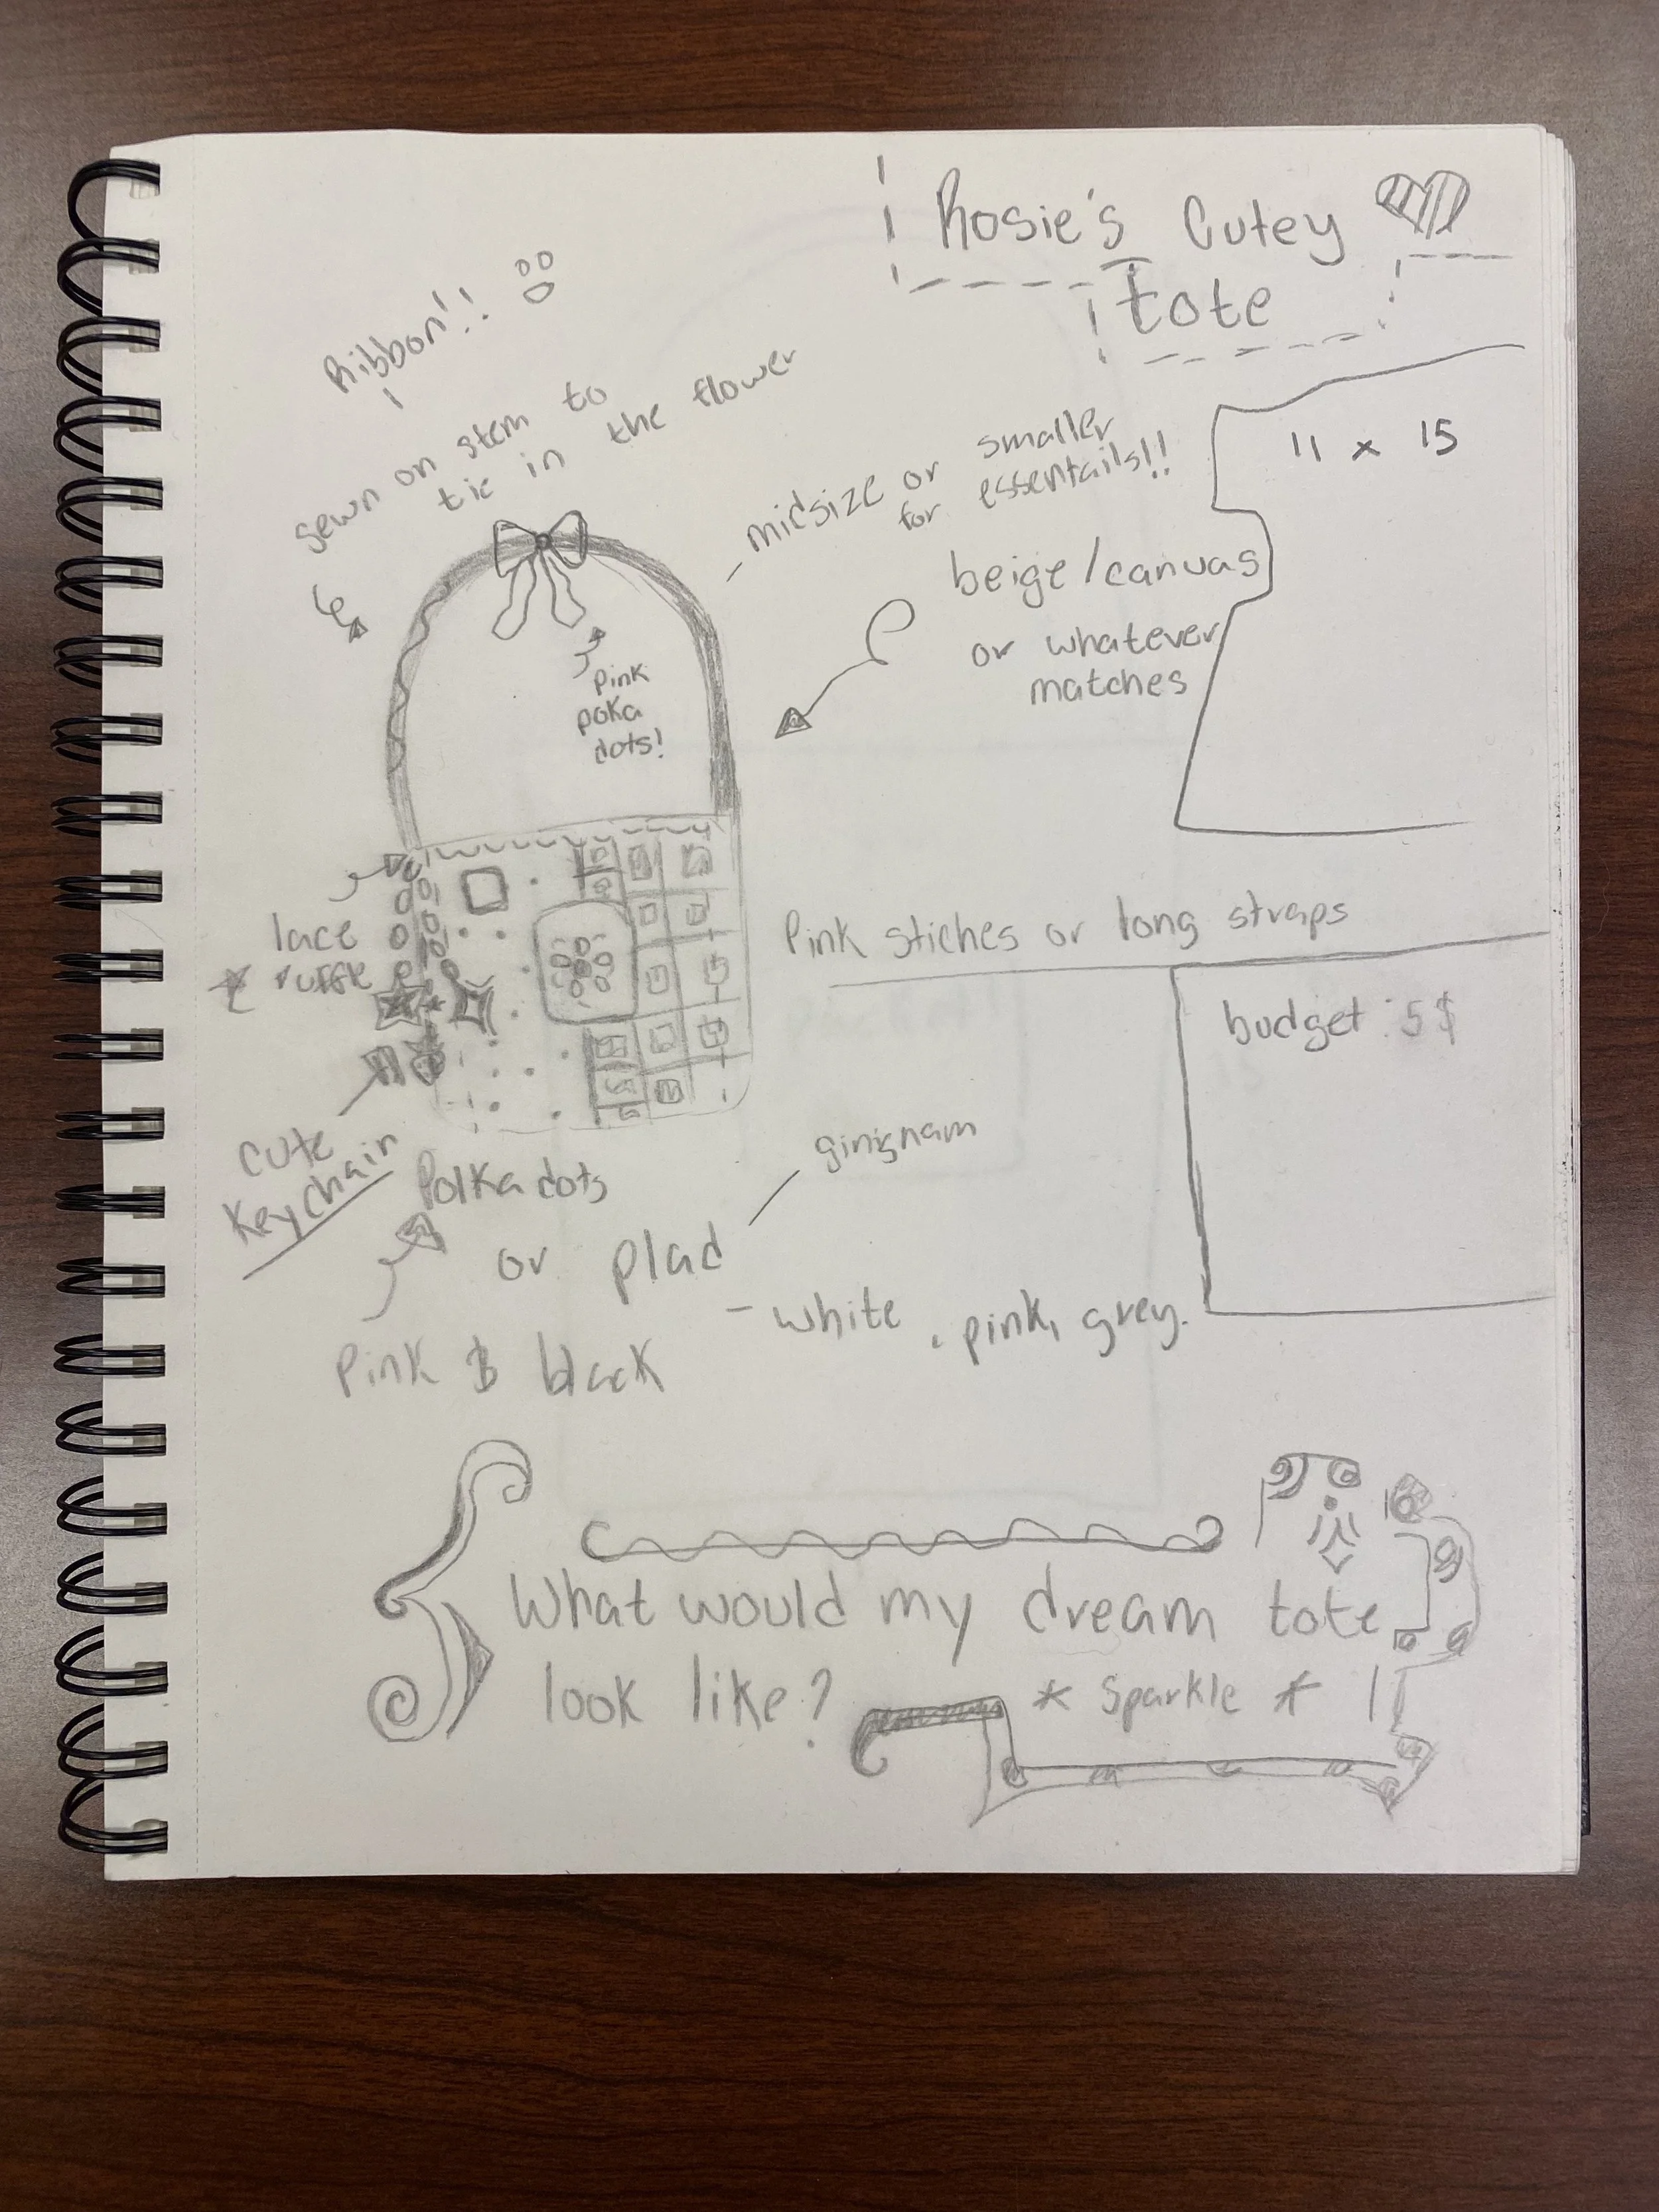 Rosie's Cutey
Tote
Ribbon!!
sewn on stem to
tie in the flower
midsize or smaller
for essentails!!
11 x 15
beige/canvas
or whatever
matches
pink
poka
dots!
lace
ruffle
Pink stiches or long straps
budget: 5$
cute
Keychain
Polka dots
or plad
ginignam
- white, pink, grey.
Pink & black
What would my dream tote
look like? * Sparkle *